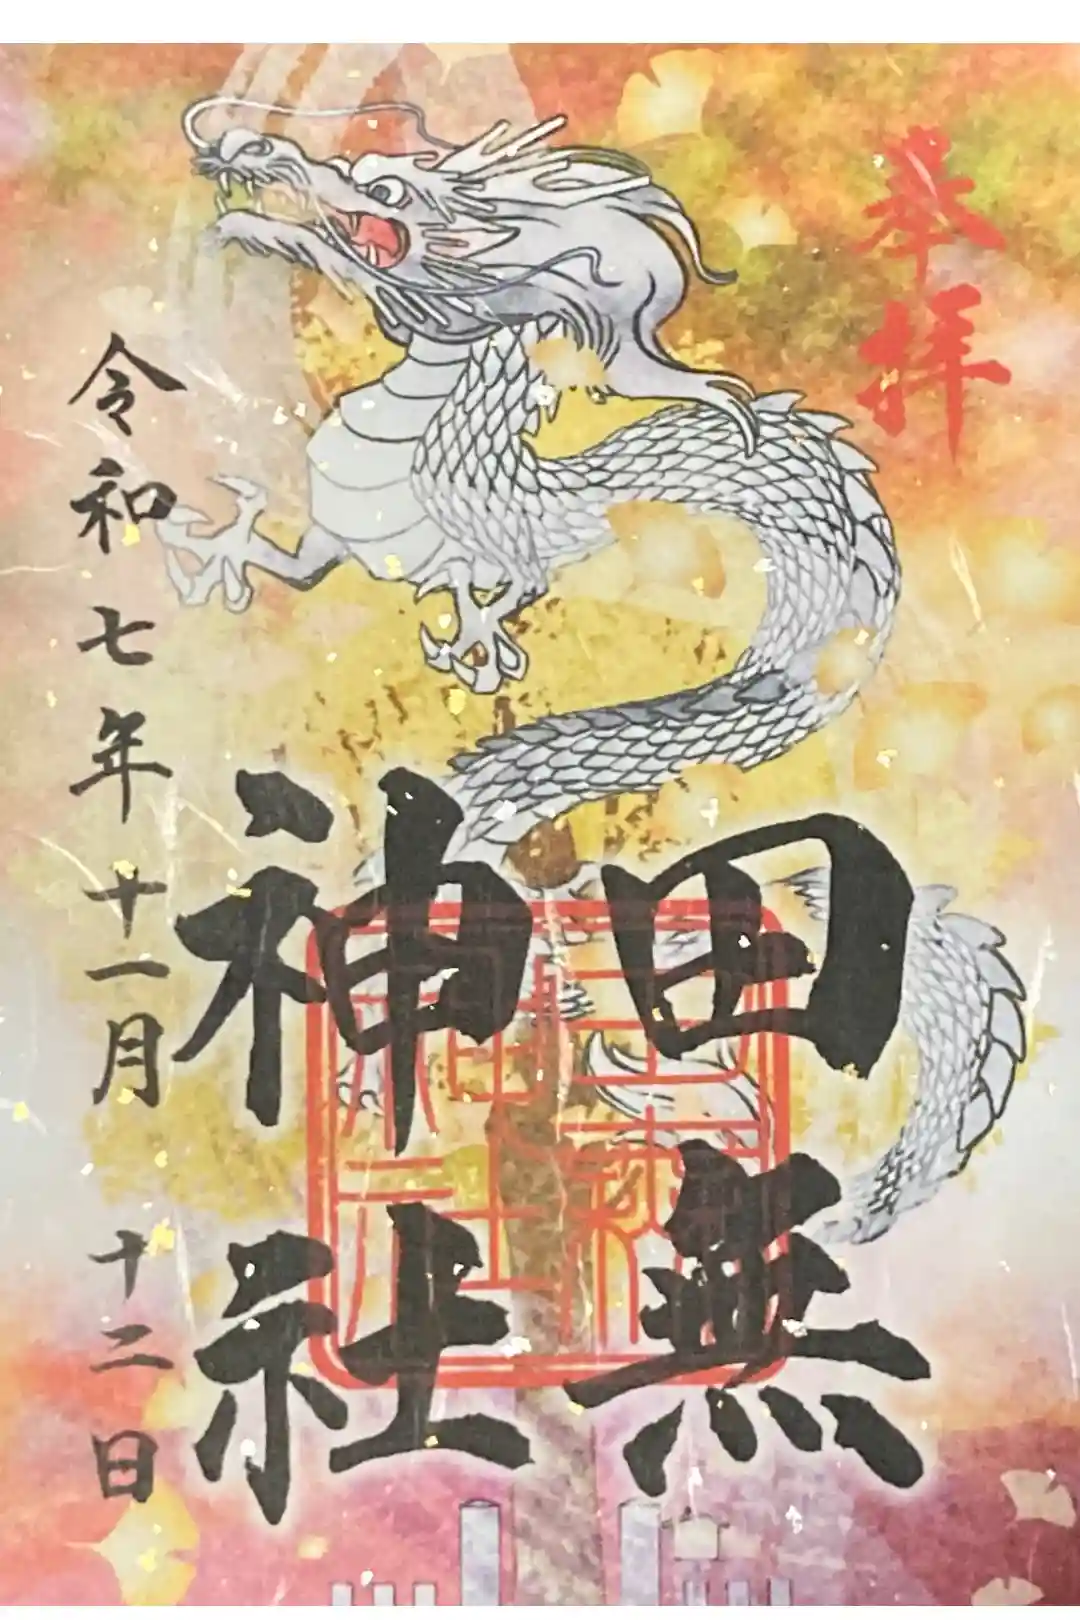 奉拝
田無
神社
令和七年十一月十二日